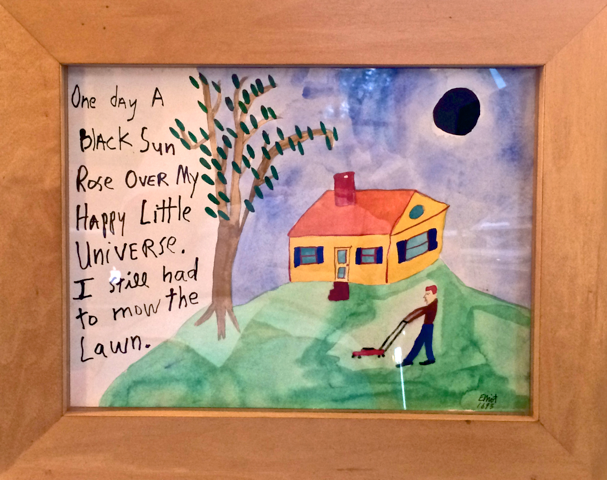 One day A
Black Sun
Rose Over My
Happy Little
Universe.
I still had
to mow the
Lawn.